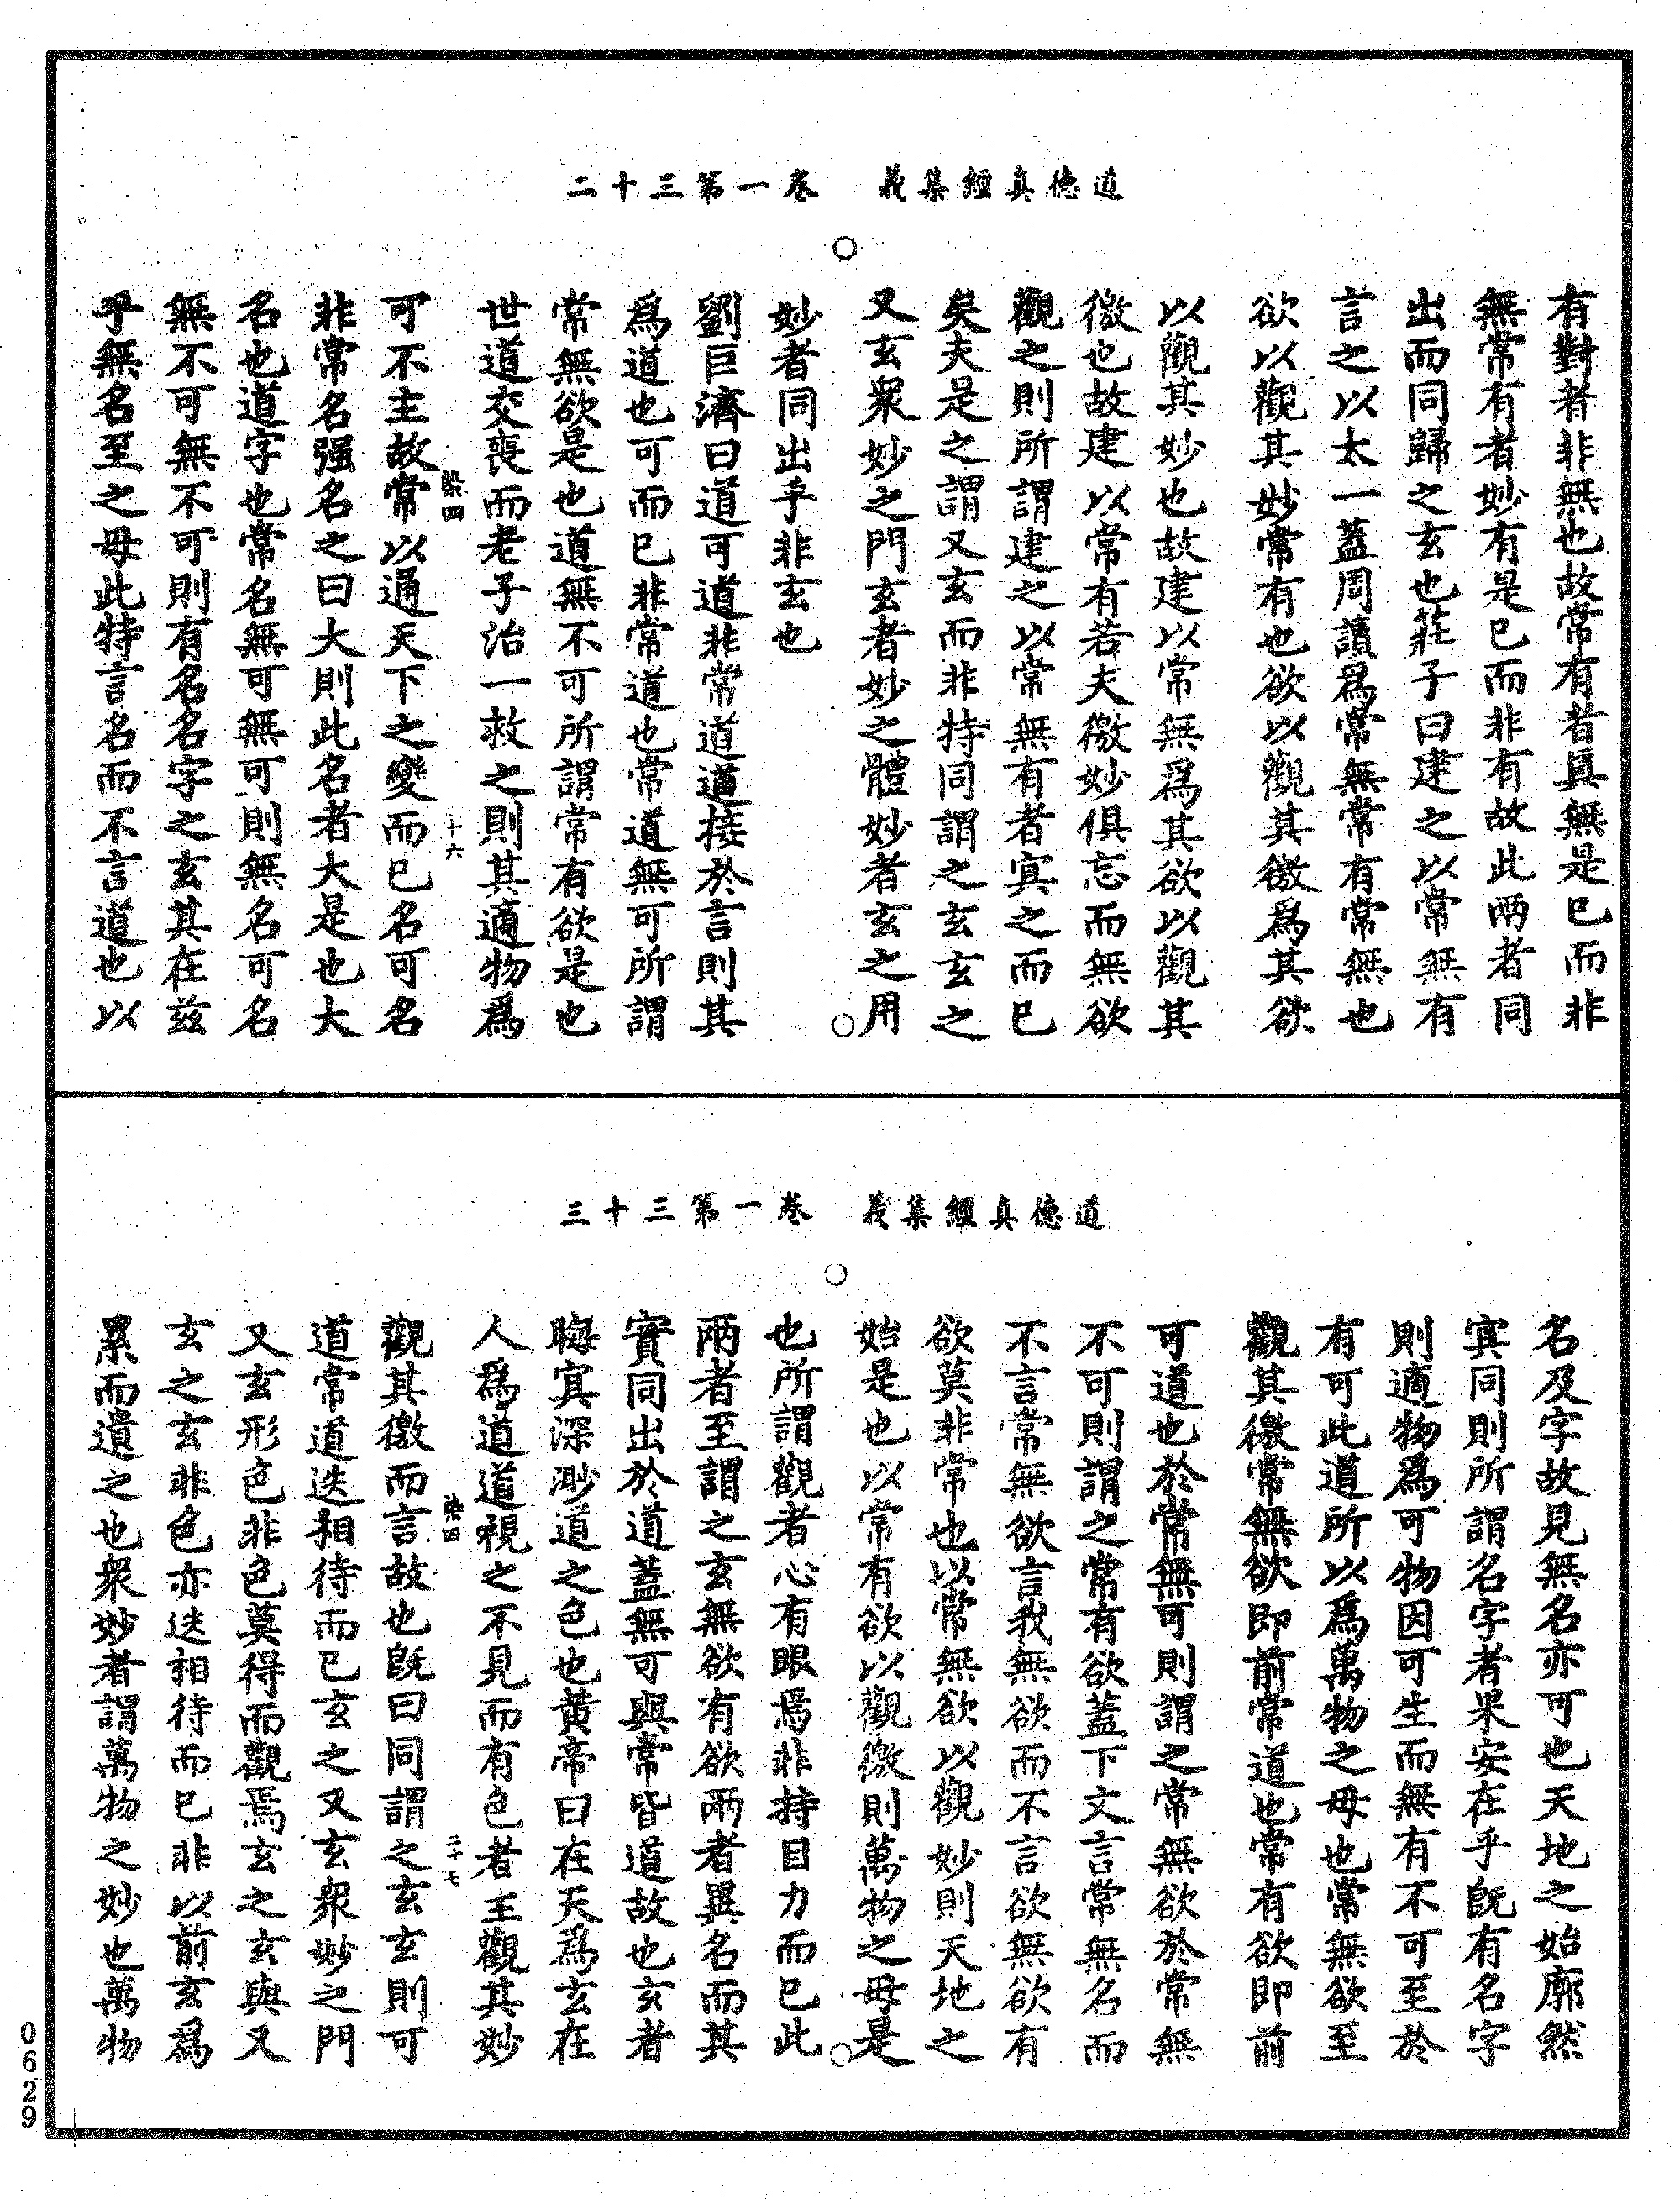 道德真經集義　卷一第三十二
有對者非無也故常有者真無是已而非
無常有者妙有是已而非有故此兩者同
出而同歸之玄也莊子曰建之以常無有
言之以太一蓋周讀爲常無常有常無也
欲以觀其妙常有也欲以觀其徼爲其欲
以觀其妙也故建以常無爲其欲以觀其
徼也故建以常有若夫徼妙俱忘而無欲
觀之則所謂建之以常無有者寘之而已
矣夫是之謂又玄而非特同謂之玄玄之
又玄衆妙之門玄者妙之體妙者玄之用
妙者同出乎非玄也
劉巨濟曰道可道非常道道接於言則其
爲道也可而已非常道也常道無可所謂
常無欲是也道無不可所謂常有欲是也
世道交喪而老子治一救之則其適物爲
染四
十六
可不主故常以通天下之變而已名可名
非常名强名之曰大則此名者大是也大
名也道字也常名無可無可則無名可名
無不可無不可則有名名字之玄其在茲
乎無名至之母此特言名而不言道也以
道德真經集義　卷一第三十三
名及字故見無名亦可也天地之始廓然
寘同則所謂名字者果安在乎旣有名字
則適物爲可物因可生而無有不可至於
有可此道所以爲萬物之母也常無欲至
觀其徼常無欲即前常道也常有欲即前
可道也於常無可則謂之常無欲於常無
不可則謂之常有欲蓋下文言常無名而
不言常無欲言我無欲而不言欲無欲有
欲莫非常也以常無欲以觀妙則天地之
始是也以常有欲以觀徼則萬物之母是
也所謂觀者心有眼焉非持目力而已此
兩者至謂之玄無欲有欲兩者異名而其
實同出於道蓋無可與常皆道故也玄者
晦寘深渺道之色也黃帝曰在天爲玄在
人爲道道視之不見而有色者主觀其妙
染四
二十七
觀其徼而言故也旣曰同謂之玄玄則可
道常道迭相待而已玄之又玄衆妙之門
又玄形色非色莫得而觀焉玄之玄與又
玄之玄非色亦迭相待而已非以前玄爲
累而遺之也衆妙者謂萬物之妙也萬物
0629